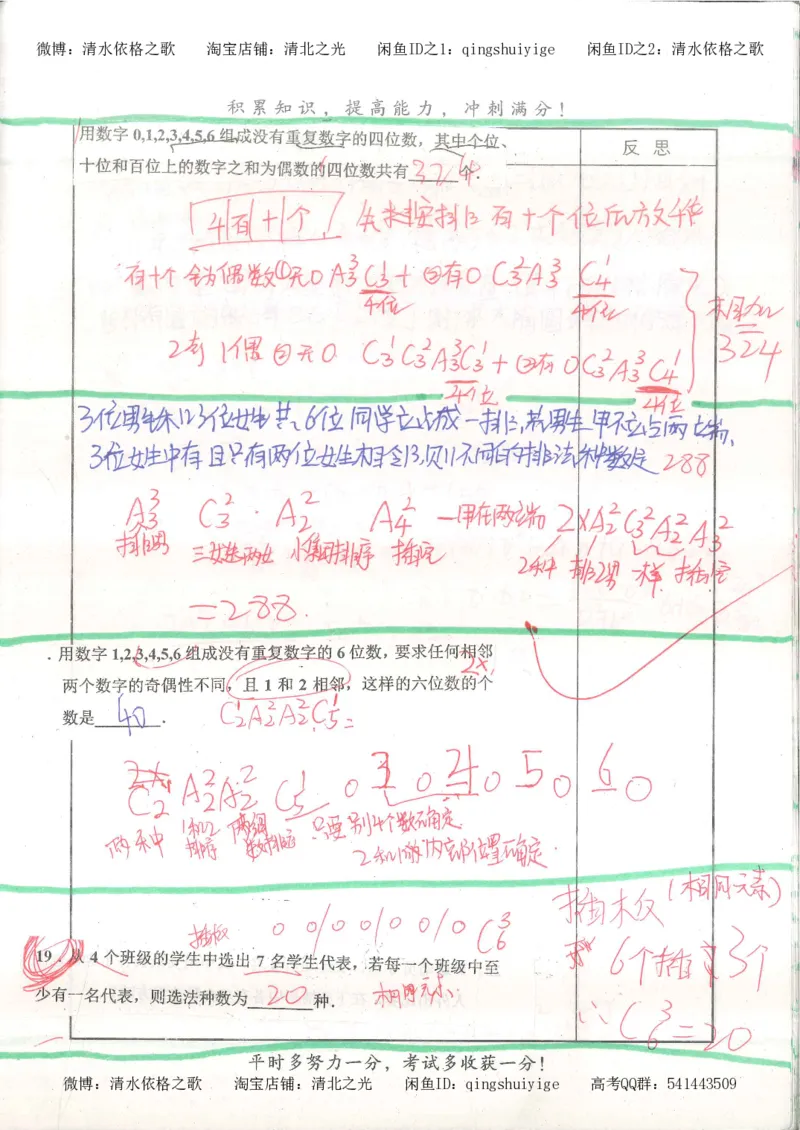 微博：清水依格之歌 淘宝店铺：清北之光 闲鱼ID之1：qingshuiyige 闲鱼ID之2：清水依格之歌
积累知识，提高能力，冲刺满分！
用数字 0,1,2,3,4,5,6 组成没有重复数字的四位数，其中个位、
反思
十位和百位上的数字之和为偶数的四位数共有 324 个.
4 百 十 个
百十个全为偶数①无0 A₃³C₃¹ + ②有0 C₃²A₃³ C₄¹
千位 千位
相加
324
2奇1偶 ①无0 C₃¹C₃²A₃³C₃¹ + ②有0 C₃²A₃³C₄¹
千位 千位
3位男生和3位女生共6位同学站成一排,若男生甲不站两端,
3位女生中有且只有两位女生相邻,则不同的排法种数是 288
A₃³ C₃² · A₂² A₄² — 甲在两端 2×A₂²C₃²A₂²A₃²
排男 三女选两女 小集团排序 插空 2种 排2男 一样 插空
=288
. 用数字 1,2,3,4,5,6 组成没有重复数字的 6 位数，要求任何相邻
两个数字的奇偶性不同，且 1 和 2 相邻，这样的六位数的个
数是 40 . C₂¹A₂²A₂²C₅¹=
C₂¹ A₂²A₂² C₅¹ 0 3 0 4 0 5 0 6 0
两种 1和2排序 两组数排序 只要别4个数确定
2和1的内部位置确定
插板 0 0/0 0/0 0/0 C₆³
插板(相同元素)
19．从 4 个班级的学生中选出 7 名学生代表，若每一个班级中至
6个插3个
少有一名代表，则选法种数为 20 种. 相同元素
∴C₆³=20
平时多努力一分，考试多收获一分！
微博：清水依格之歌 淘宝店铺：清北之光 闲鱼ID：qingshuiyige 高考QQ群：541443509